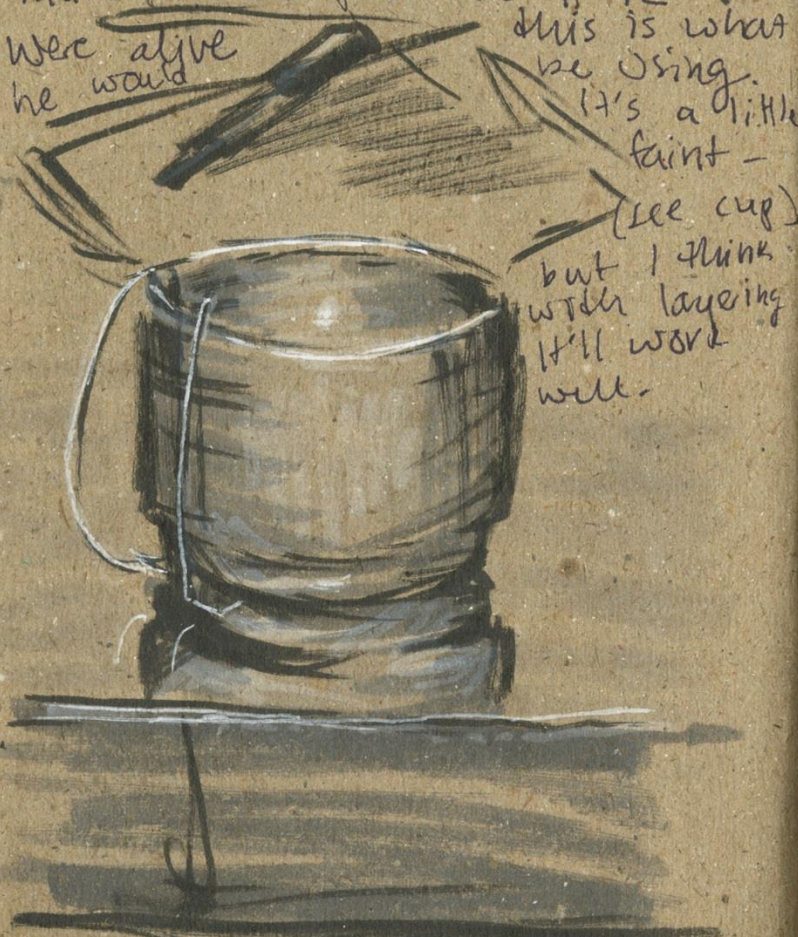 were alive
he would
this is what
be using.
It's a little
faint -
(see cup)
but I think
with layering
It'll work
well.